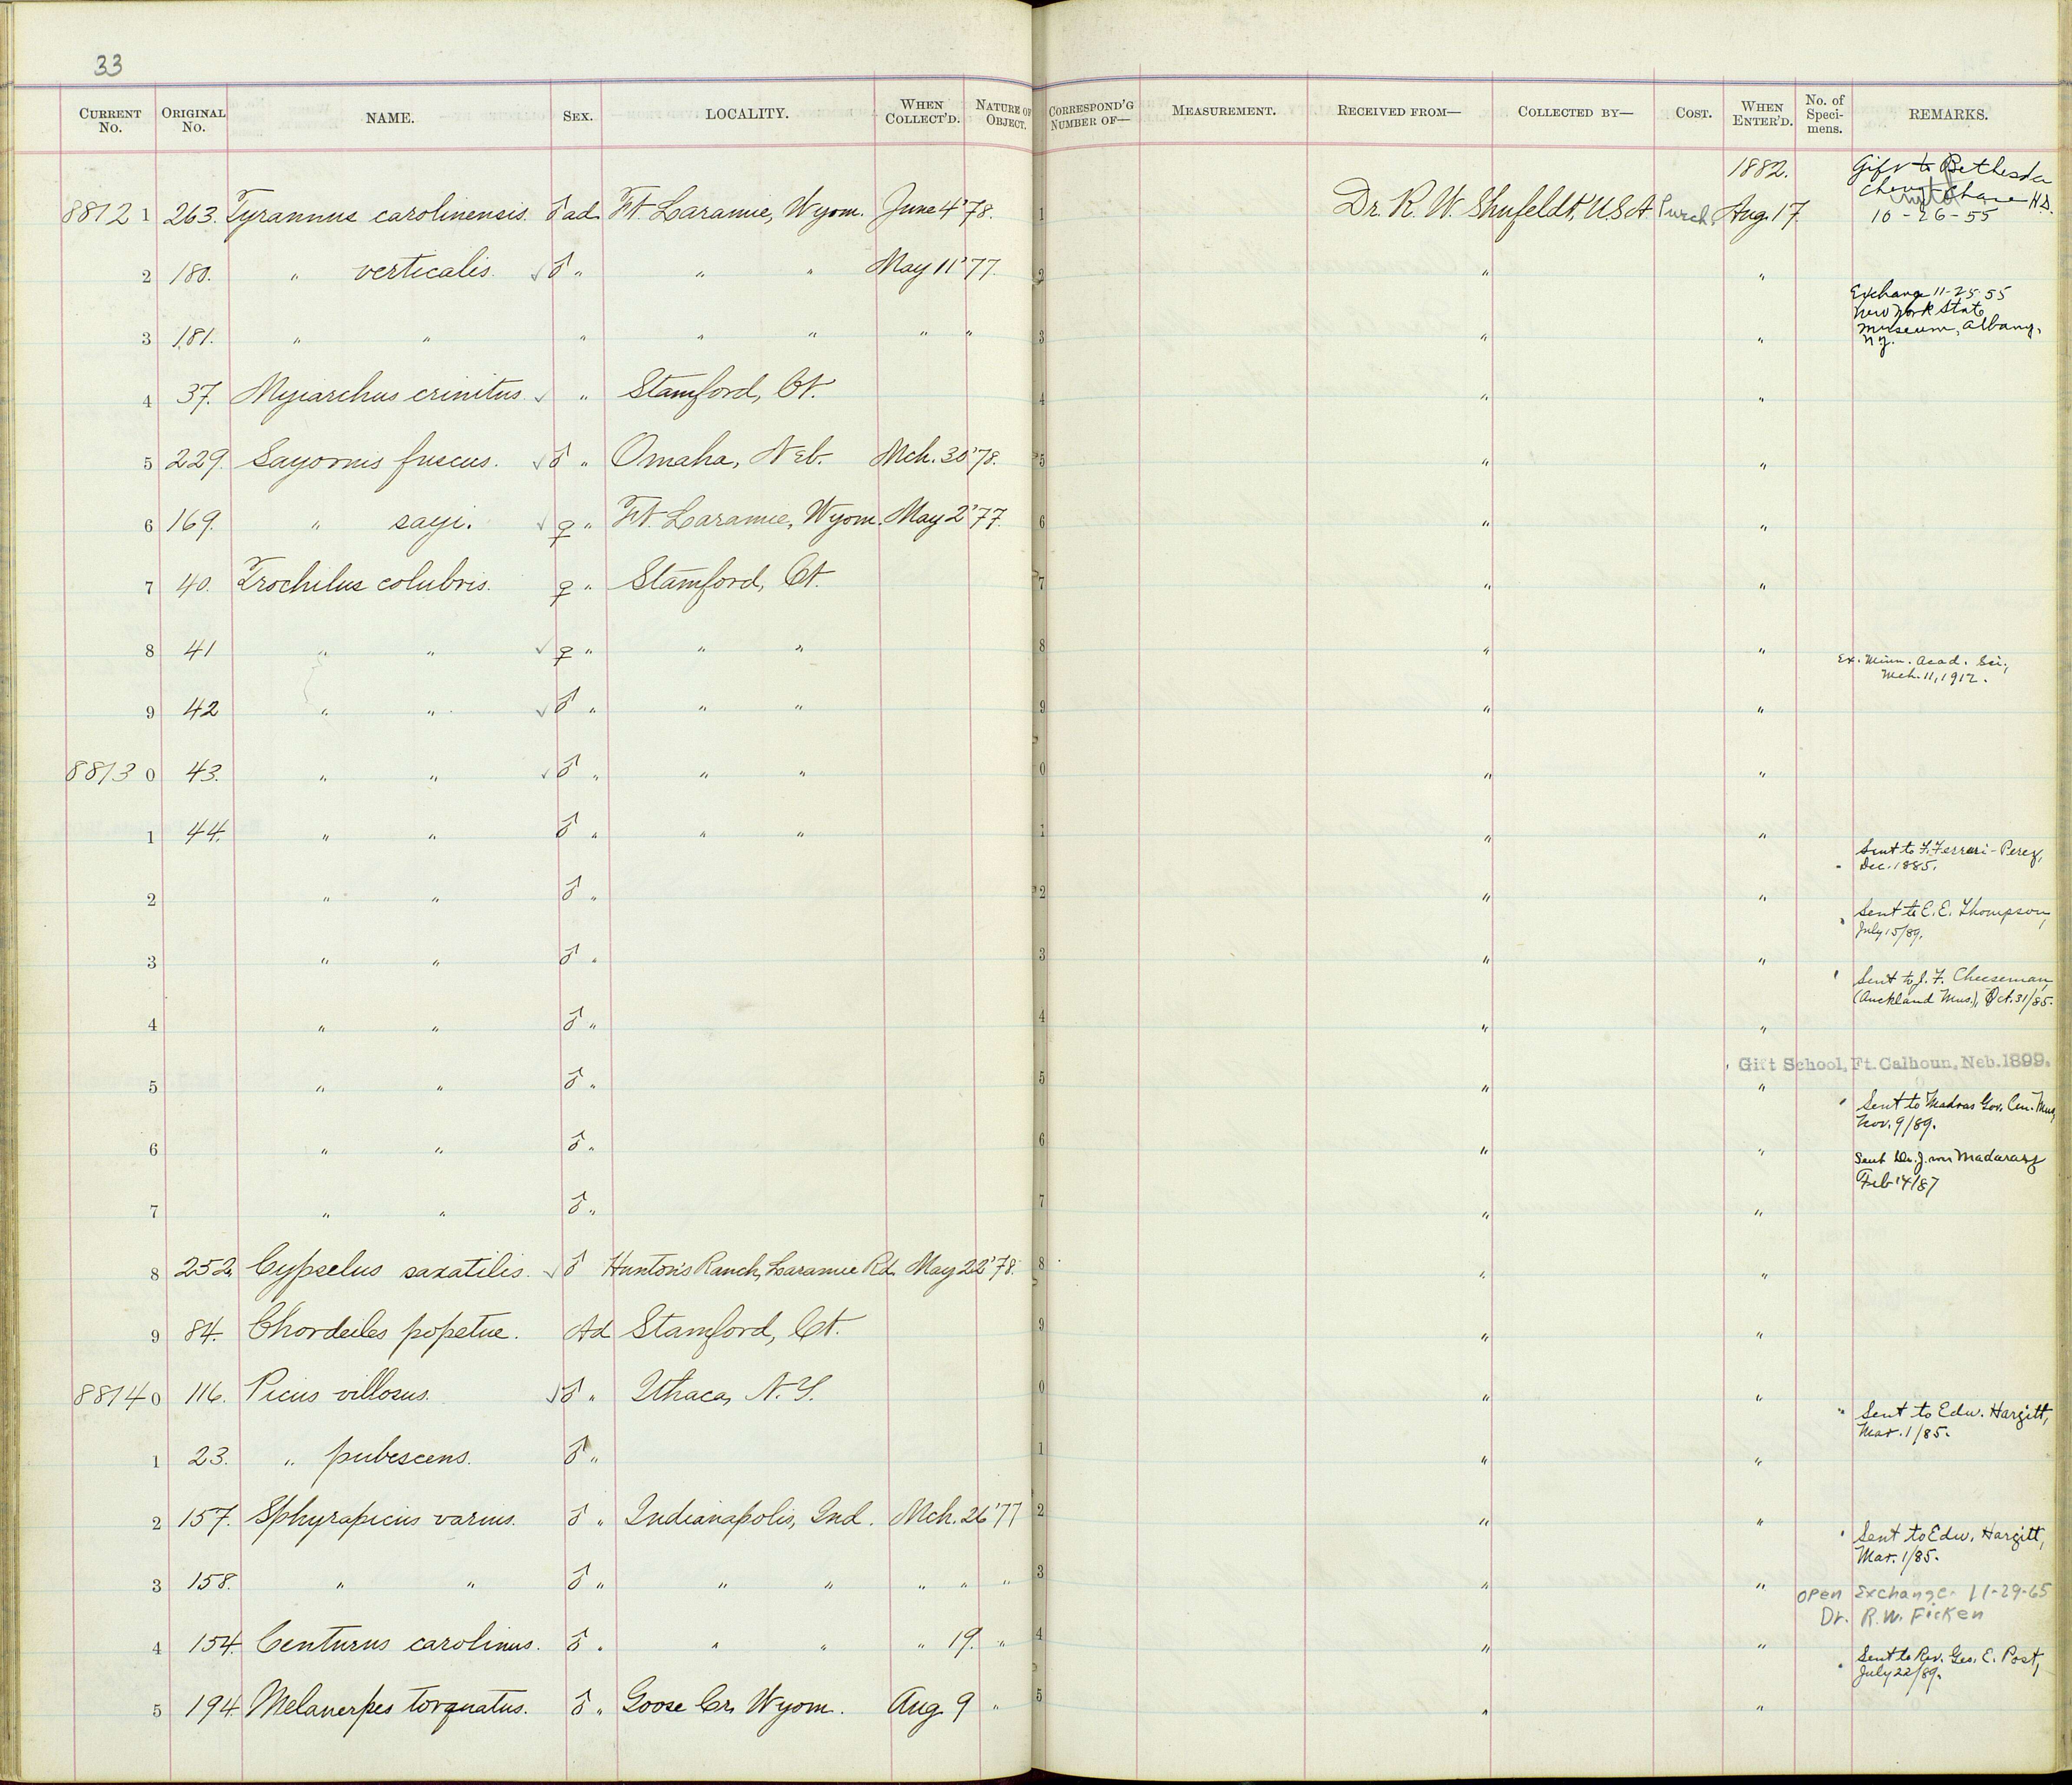 33
CURRENT No. ORIGINAL No. NAME. SEX. LOCALITY. WHEN COLLECT'D. NATURE OF OBJECT. CORRESPOND'G NUMBER OF— MEASUREMENT. RECEIVED FROM— COLLECTED BY— COST. WHEN ENTER'D. No. of Specimens. REMARKS.
1882. Gift to Bethesda
Chevy Chase H.S.
8812 1 263. Tyrannus carolinensis. ♂ ad Ft. Laramie, Wyom. June 4 '78. 1 Dr. R. W. Shufeldt, USA Purch. Aug. 17. 10-26-55
2 180. " verticalis. ✓ ♂ " " " May 11 '77. 2 " "
Exchange 11-25-55
New York State
Museum, Albany,
N.Y.
3 181. " " " " " " " 3 " "
4 37. Myiarchus crinitus. ✓ " Stamford, Ct. 4 " "
5 229. Sayornis fuscus. ✓ ♂ " Omaha, Neb. Mch. 30 '78. 5 " "
6 169. " sayi. ✓ ♀ " Ft. Laramie, Wyom. May 2 '77. 6 " "
7 40. Trochilus colubris. ♀ " Stamford, Ct. 7 " "
8 41 " " ✓ ♀ " " " 8 " "
Ex. Minn. Acad. Sci.,
Mch. 11, 1912.
9 42 " " ✓ ♂ " " " 9 " "
8813 0 43. " " ✓ ♂ " " " 0 " "
1 44. " " ♂ " " " 1 " "
Sent to F. Ferrari-Perez,
Dec. 1885.
2 " " ♂ " 2 " "
Sent to E. E. Thompson,
July 15/89.
3 " " ♂ " 3 " "
Sent to J. F. Cheeseman,
(Auckland Mus.), Oct. 31/85.
4 " " ♂ " 4 " "
Gift School, Ft. Calhoun, Neb. 1899.
5 " " ♂ " 5 " "
Sent to Madras Gov. Cen. Mus,
Nov. 9/89.
6 " " ♂ " 6 " "
Sent Dr. J. von Madarasz
Feb 14/87
7 " " ♂ " 7 " "
8 252. Cypselus saxatilis. ✓ ♂ Hunton's Ranch, Laramie Rd. May 22 '78. 8 " "
9 84. Chordeiles popetue. Ad Stamford, Ct. 9 " "
8814 0 116. Picus villosus. ✓ ♂ " Ithaca, N.Y. 0 " "
Sent to Edw. Hargitt,
Mar. 1/85.
1 23. " pubescens. ♂ " 1 " "
2 157. Sphyrapicus varius. ♂ " Indianapolis, Ind. Mch. 26 '77 2 " "
Sent to Edw. Hargitt,
Mar. 1/85.
3 158. " " ♂ " " " " " " 3 " "
open Exchange 11-29-65
Dr. R.W. Ficken
4 154. Centurus carolinus. ♂ " " " " 19. " 4 " "
Sent to Rev. Geo. E. Post,
July 22/89.
5 194 Melanerpes torquatus. ♂ " Goose Cr. Wyom. Aug 9 " 5 " "